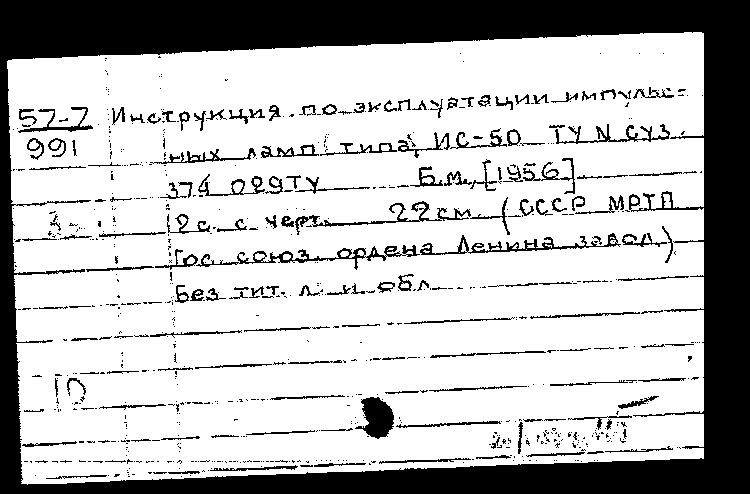 57-7 Инструкция по эксплуатации импульс=
991 ных ламп типа ИС-50 ТУ N СУ3.
374 029ТУ Б.м., [1956].
2 с. с черт. 22 см. (СССР МРТП
Гос. союз. ордена Ленина завод)
Без тит. л. и обл.
10